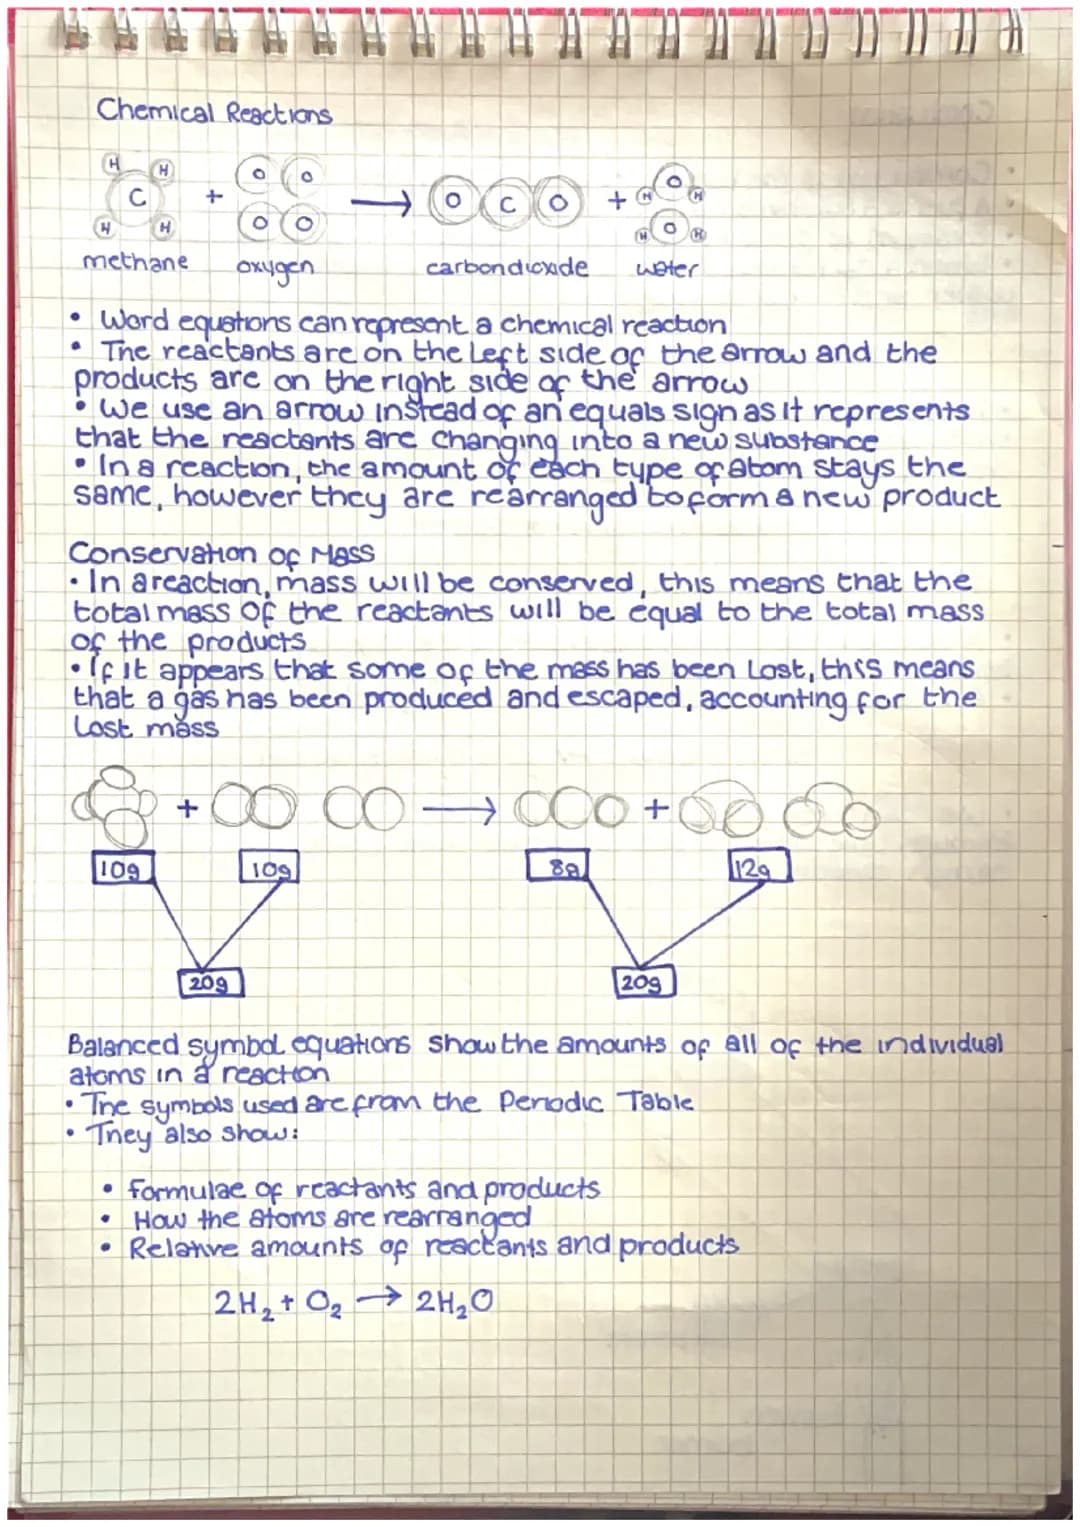 Chemical Reactions
H H O O
C + → O C O + H O H
H H O O H O H
methane oxygen carbondioxide water
• Word equations can represent a chemical reaction
• The reactants are on the left side of the arrow and the
products are on the right side of the arrow
• We use an arrow instead of an equals sign as it represents
that the reactants are changing into a new substance
• In a reaction, the amount of each type of atom stays the
same, however they are rearranged to form a new product
Conservation of Mass
• In a reaction, mass will be conserved, this means that the
total mass of the reactants will be equal to the total mass
of the products
• If it appears that some of the mass has been lost, this means
that a gas has been produced and escaped, accounting for the
lost mass
+ → +
10g 10g 8g 12g
20g 20g
Balanced symbol equations show the amounts of all of the individual
atoms in a reaction
• The symbols used are from the Periodic Table
• They also show:
• Formulae of reactants and products
• How the atoms are rearranged
• Relative amounts of reactants and products
2H₂ + O₂ → 2H₂O